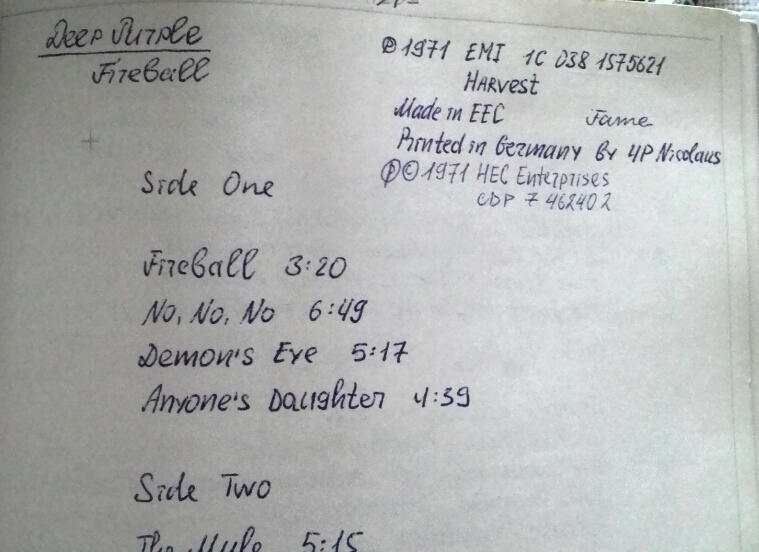 Deep Purple
Fireball
℗1971 EMI 1C 038 1575621
Harvest
Made in EEC Fame
Printed in Germany by 4P Nicolaus
℗©1971 HEC Enterprises
CDP 7 46240 2
Side One
Fireball 3:20
No, No, No 6:49
Demon's Eye 5:17
Anyone's Daughter 4:39
Side Two
The Mule 5:15